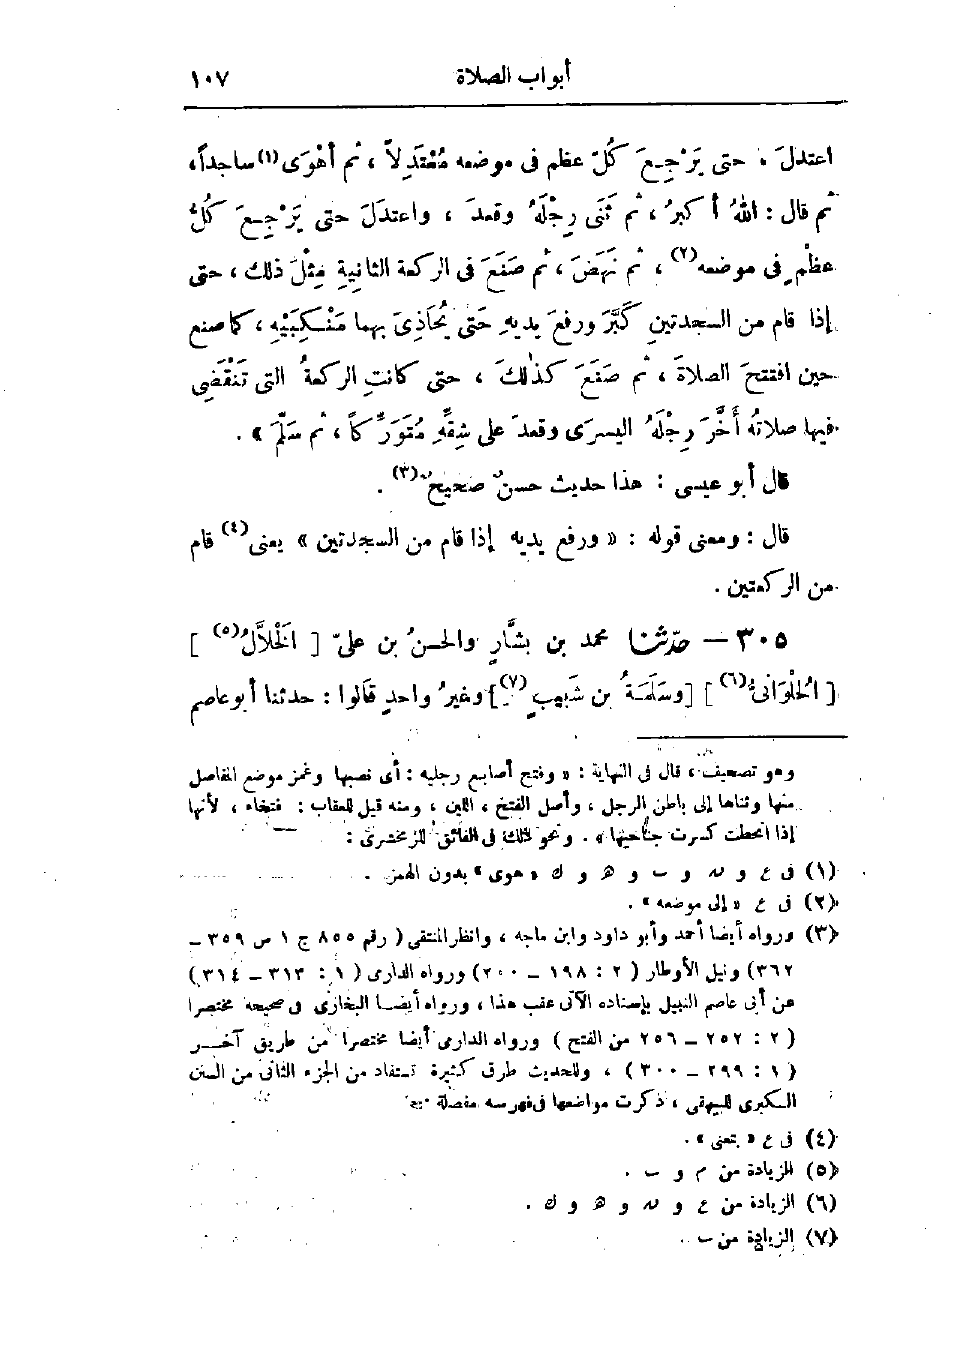 أبواب الصلاة ١٠٧
اعتدلَ ، حتى يَرْجِعَ كُلّ عظم فى موضعه مُعْتَدِلاً ، ثم أَهْوَى (١) ساجداً،
ثم قال : اللهُ أكبرُ ، ثم ثَنَى رِجْلَهُ وقعدَ ، واعتدَلَ حتى يَرْجِعَ كُلُّ
عظْمٍ فى موضعه (٢) ، ثم نَهَضَ ، ثم صَنَعَ فى الركعة الثانيةِ مِثْلَ ذلك ، حتى
إذا قام من السجدتينِ كَبَّرَ ورفعَ يديهِ حَتَّى يُحَاذِىَ بهما مَنْكِبَيْهِ ، كما صنع
حين افتتحَ الصلاةَ ، ثم صَنَعَ كذلكَ ، حتى كانتِ الركعةُ التى تَنْقَضِى
فيها صلاتهُ أَخَّرَ رِجْلَهُ اليسرَى وقعدَ على شِقِّهِ مُتَوَرِّكاً ، ثم سَلَّمَ » .
قال أبو عيسى : هذا حديث حسنٌ صحيحٌ (٣) .
قال : ومعنى قوله : « ورفع يديه إذا قام من السجدتين » يعنى (٤) قام
من الركعتين .
٣٠٥ — حدّثنا محمد بن بشَّارٍ والحسنُ بن علىّ [ الْخَلاَّلُ (٥) ]
[ الْحُلْوَانىُّ (٦) ] [ وسَلَمَةُ بن شَبِيبٍ (٧) ] وغيرُ واحدٍ قالوا : حدثنا أبو عاصم
وهو تصحيف ، قال فى النهاية : « وفتح أصابع رجليه : أى نصبها وغمز موضع المفاصل
منها وثناها إلى باطن الرجل ، وأصل الفتخ ، اللين ، ومنه قيل للعقاب : فتخاء ، لأنها
إذا انحطت كسرت جناحيها » . ونحو ذلك فى الفائق للزمخشرى :
(١) فى ع و نه و ب و هـ و ك « هوى » بدون الهمز .
(٢) فى ع « إلى موضعه » .
(٣) ورواه أيضا أحمد وأبو داود وابن ماجه ، وانظر المنتقى ( رقم ٨٥٥ ج ١ س ٣٥٩ —
٣٦٢) ونيل الأوطار ( ٢ : ١٩٨ — ٢٠٠) ورواه الدارى ( ١ : ٣١٣ — ٣١٤ )
عن أبى عاصم النبيل بإسناده الآتى عقب هذا ، ورواه أيضا البخارى فى صحيحه مختصرا
( ٢ : ٢٥٢ — ٢٥٦ من الفتح ) ورواه الدارمى أيضا مختصرا من طريق آخر
( ١ : ٢٩٩ — ٣٠٠ ) ، وللحديث طرق كثيرة تستفاد من الجزء الثانى من السنن
الكبرى للبيهقى ، ذكرت مواضعها فى فهرسه مفصلة
(٤) فى ع « بتعنى » .
(٥) الزيادة من م و ب .
(٦) الزيادة من ع و نه و هـ و ك .
(٧) الزيادة من ب .